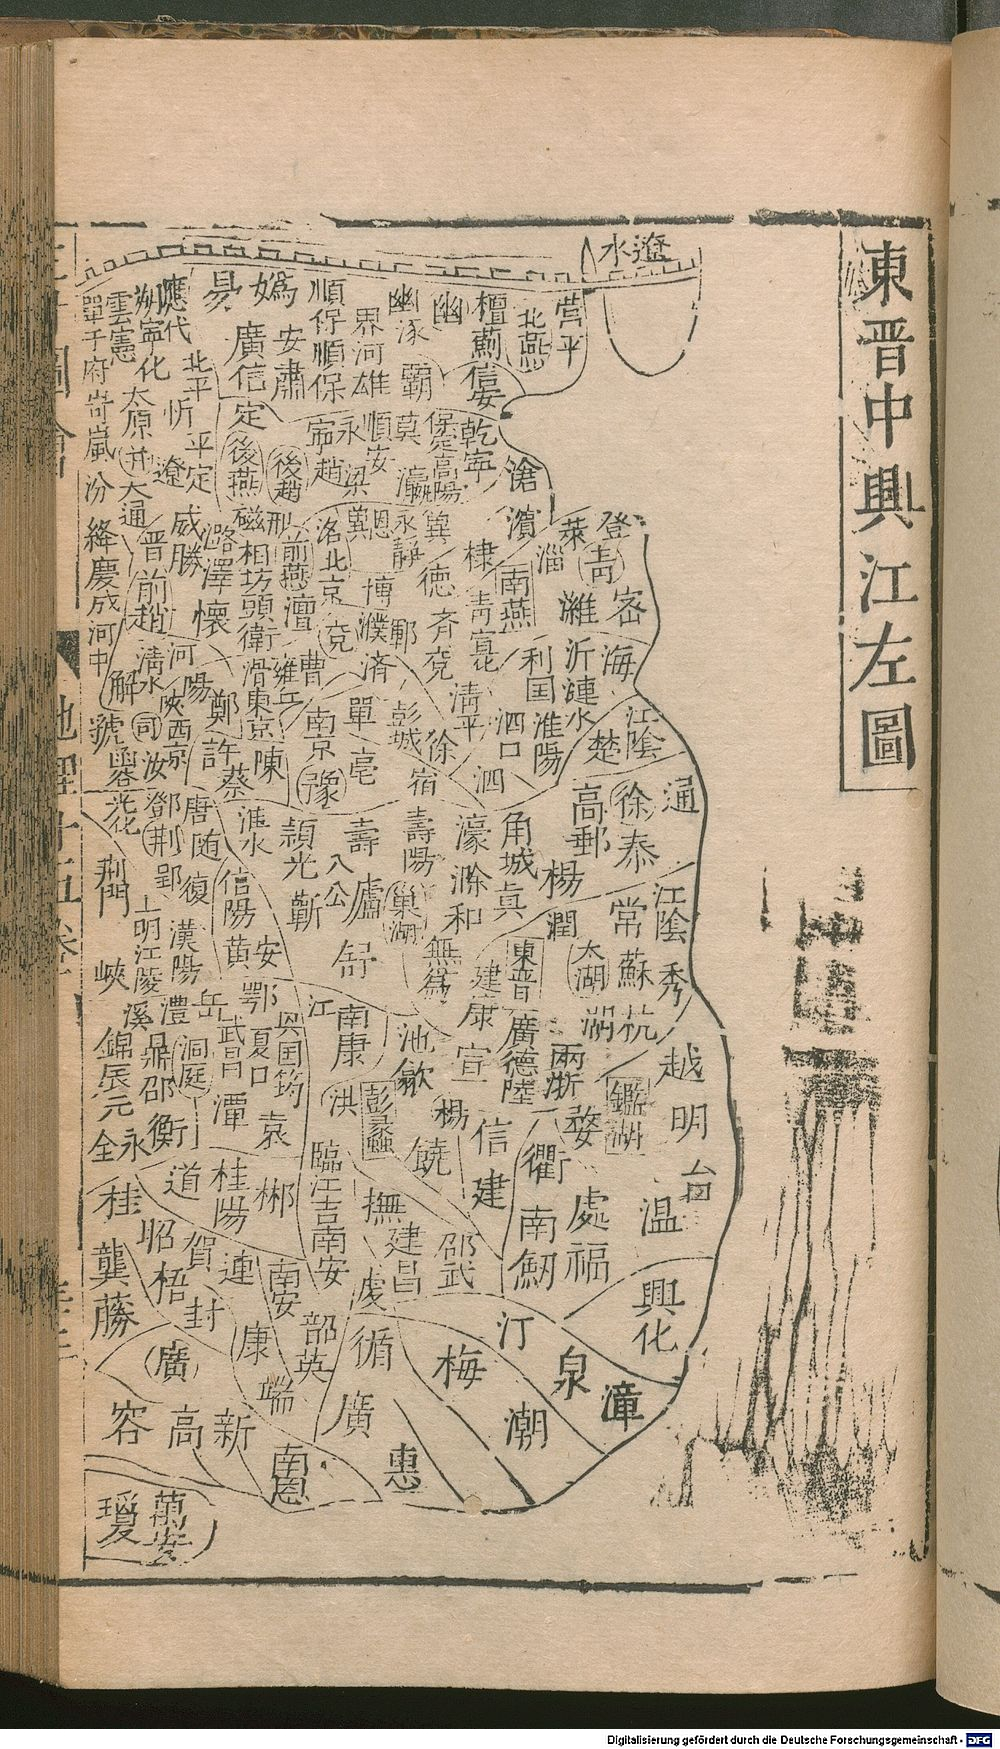 東晉中興江左圖
遼水
營平
北燕
檀薊
信安
幽
幽涿
霸
界河雄
順保順保
媯
安肅
易
廣信
定
應代
朔寧化
雲憲
單于府
岢嵐
汾
絳
慶成
河中
北平
忻
平定
太原
并
大通
遼
威勝
晉
前趙
後燕
後趙
磁
邢
前燕
澶
相
坊頭
衛
滑
東京
雍丘
曹
永
順安
莫
瀛
保定
高陽
乾寧
滄
濱
棣
冀
恩
永靜
德
洛
北京
博
濮
鄆
齊
兗
濟
南燕
淄
萊
登
青
濰
密
沂
海
漣水
利国
淮陽
泗口
泗
清平
徐
彭城
宿
單
亳
南京
豫
陳
蔡
許
鄭
河陽
懷
澤
清水
解
陝
西京
司
汝
虢
光化
鄧
荆
唐
随
郢
復
淮水
潁
光
蘄
信陽
黄
安
壽
八公
廬
舒
壽陽
巢湖
無為
濠
滁
和
角城
真
楊
高郵
徐
泰
通
楚
江陰
江陰
常
潤
太湖
蘇
秀
湖
杭
東晋
建康
廣德
陸
宣
池
歙
兩浙
越
明
台
温
鑑湖
婺
衢
處
福
南劒
信
建
饒
彭蠡
洪
南康
江
鄂
岳
武昌
夏口
興国
筠
袁
潭
洞庭
澧
鼎
邵
衡
永
全
荆門
峽
上明
江陵
漢陽
溪
錦
辰
元
臨江
吉
南安
撫
建昌
邵武
虔
郴
桂陽
道
桂
昭
賀
連
梧
封
龔
藤
南安
韶
英
康
端
循
梅
汀
興化
泉
漳
潮
惠
廣
(廣)
容
高
新
南恩
瓊
萬安
Digitalisierung gefördert durch die Deutsche Forschungsgemeinschaft - DFG